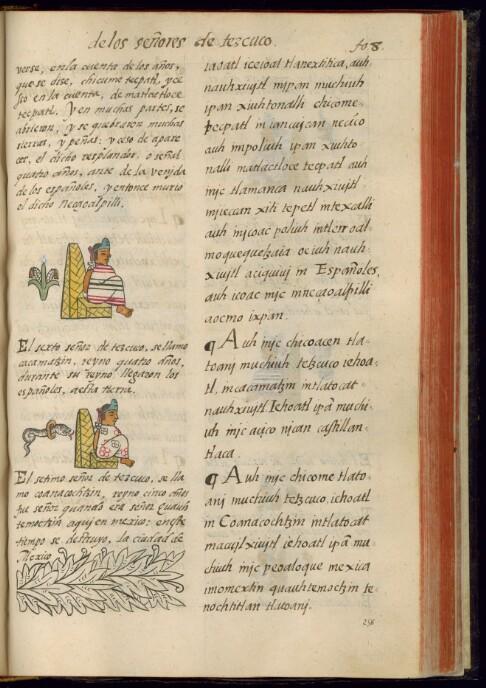 de los señores de tezcuco.
fo. 8.
verse, en la cuenta de los años,
que se dize, chicume tecpatl, y ce
so en la cuenta, de matlactloce
tecpatl. y en muchas partes, se
abrieron, y se quebraron muchas
sierras, y peñas: y ceso de apare
cer, el dicho resplandor, o señal
quatro años, ante de la venida
de los españoles, y entonce murio
el dicho neçaoalpilli.
El sexto señor de tezcuco, se llamo
cacamatzin, reyno quatro años,
durante su reyno llegaron los
españoles, aesta tierra.
El setimo señor de tezcuco, se lla
mo coanacochtzin, reyno cinco años
fue señor quando era señor Quauh
temoctzin aqui en mexico: en este
tiempo se destruyo, la ciudad de
Mexico.
ioaoatl iceioatl tlanextitica, auh
nauhxiujtl mjpan muchiuh
ipan xiuhtonalli chicome
tecpatl in iancujcan necico
auh impoliuh ipan xiuhto
nalli matlactloce tecpatl auh
mjc tlamanca nauhxiujtl
mjeccan xiti tepetl mtexcalli
auh injcoac poliuh
moquequetzaia ociuh nauh
xiujtl aciquiuj in Españoles,
auh icoac mjc mneçaoalpilli
aocmo ixpan.
¶ Auh injc chicoacen tla
toanj muchiuh tetzcuco iehoa
tl, in cacamatzin intlatocat
nauhxiujtl Iehoatl ipã muchi
uh injc acico njcan castillan
tlaca.
¶ Auh injc chicome tlato
anj muchiuh tetzcuco, iehoatl
in Coanacochtzin intlatocat
macujlxiujtl iehoatl ipã mu
chiuh injc peoaloque mexica
imomextin quauhtemoctzin te
nochtitlan tlatoanj.
258